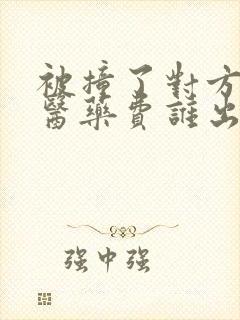 被撞了對方
醫藥費誰出
强中强